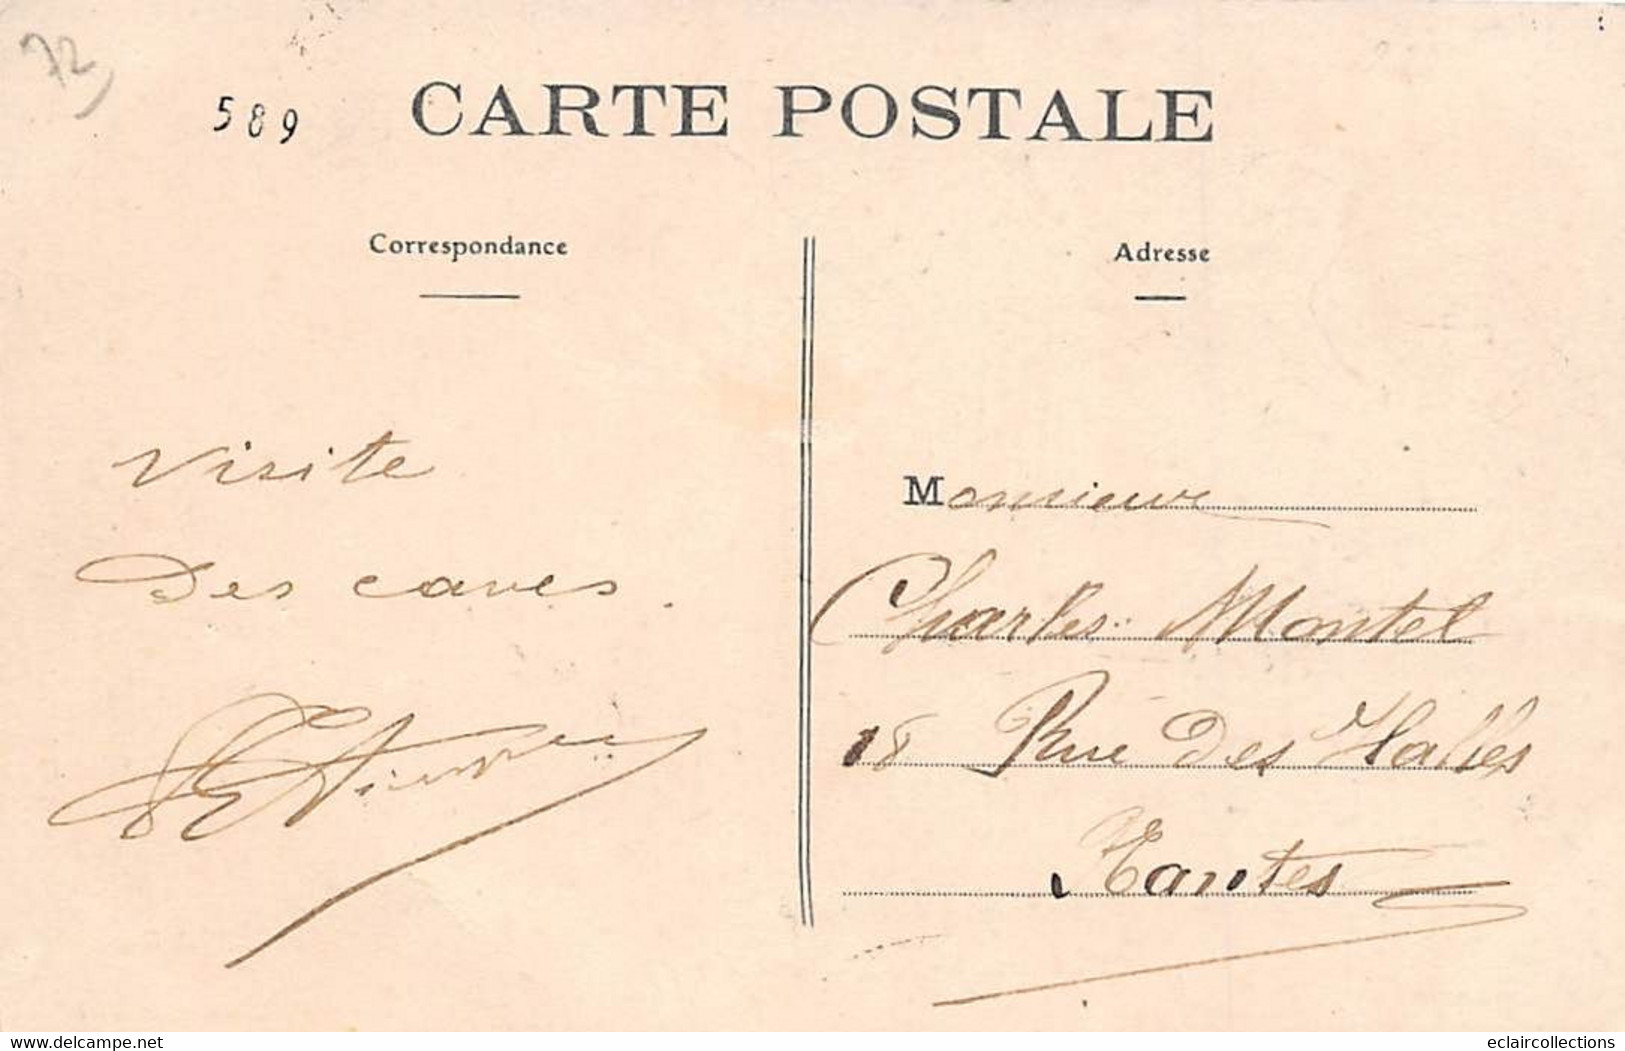 72
589
CARTE POSTALE
Correspondance
Adresse
Visite
Des caves.
Monsieur
Charles Montel
18 Rue Des Halles
Nantes
www.delcampe.net
eclaircollections